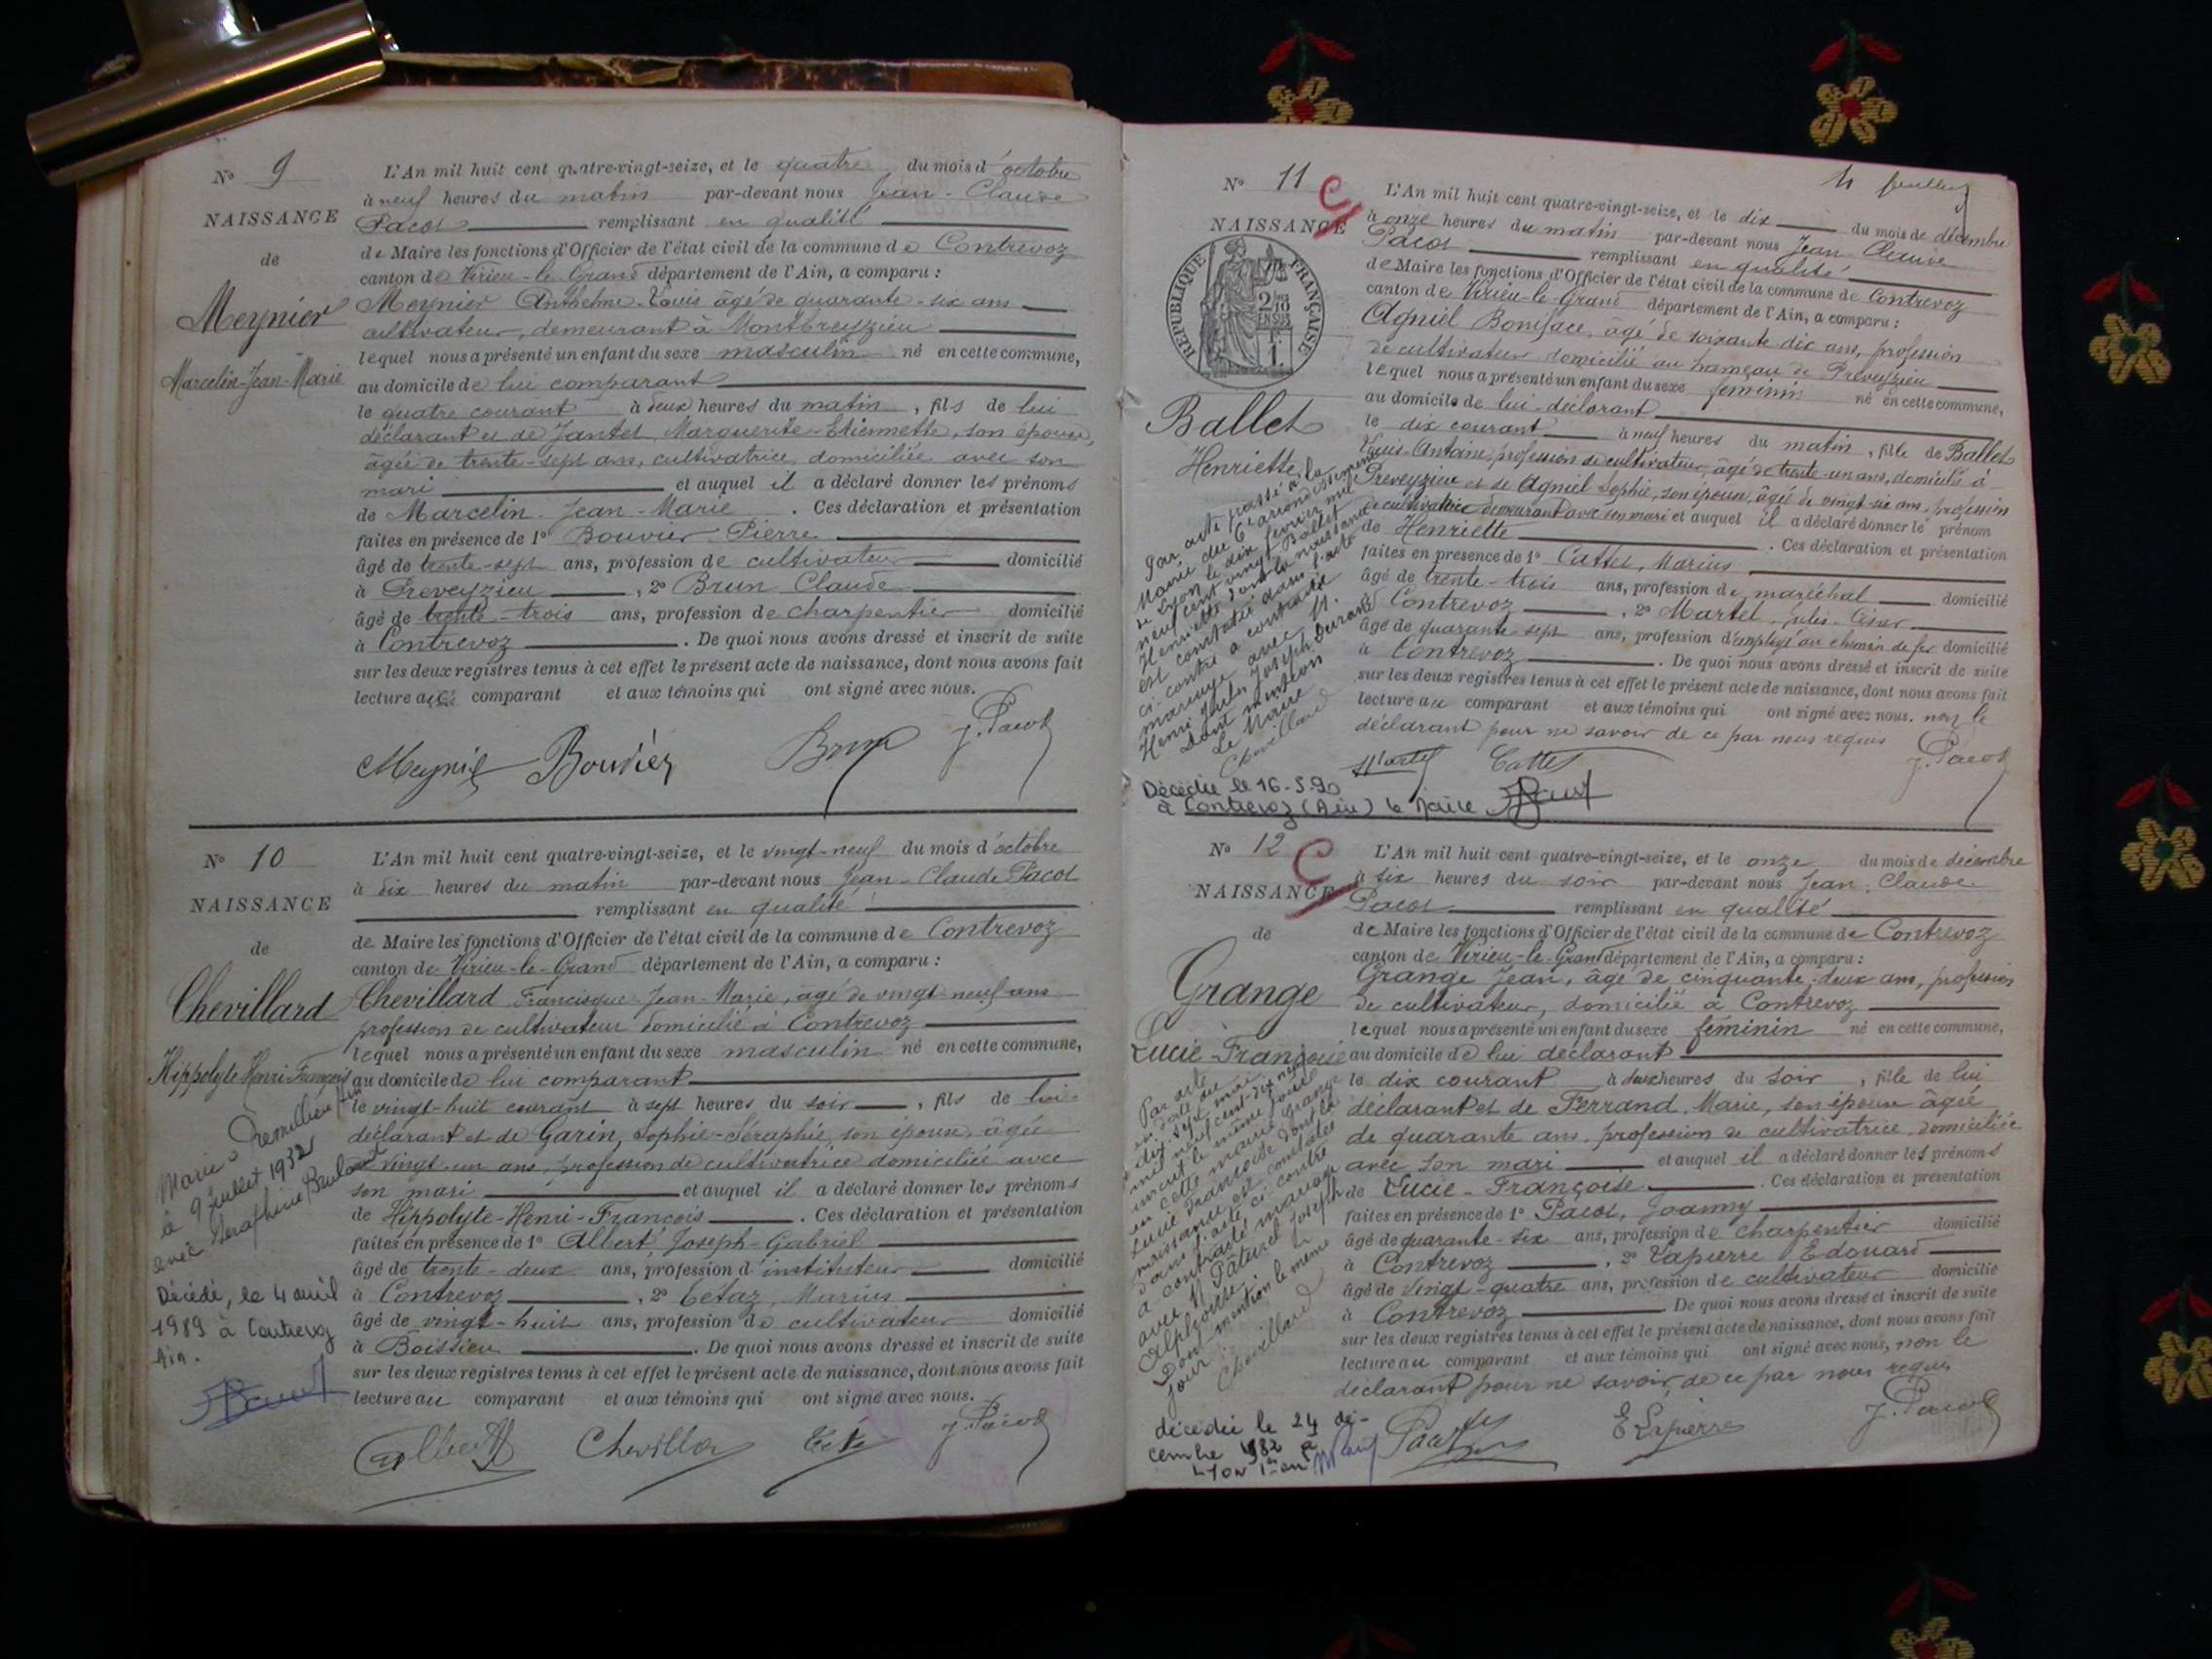 N° 9
NAISSANCE
de
Meynier
Marcelin-Jean-Marie
L'An mil huit cent quatre-vingt-seize, et le quatre du mois d'octobre
à neuf heures du matin par-devant nous Jean-Claude
Pacot remplissant en qualité
de Maire les fonctions d'Officier de l'état civil de la commune de Contrevoz
canton de Virieu-le-Grand département de l'Ain, a comparu :
Meynier Anthelme-Louis âgé de quarante-six ans
cultivateur, demeurant à Montbreyzieu
lequel nous a présenté un enfant du sexe masculin né en cette commune,
au domicile de lui comparant
le quatre courant à deux heures du matin, fils de lui
déclarant et de Jantet Marguerite-Etiennette, son épouse,
âgée de trente-sept ans, cultivatrice, domiciliée avec son
mari et auquel il a déclaré donner les prénoms
de Marcelin-Jean-Marie. Ces déclaration et présentation
faites en présence de 1° Bouvier Pierre
âgé de trente-sept ans, profession de cultivateur domicilié
à Preveyzieu, 2° Brun Claude
âgé de trente-trois ans, profession de charpentier domicilié
à Contrevoz. De quoi nous avons dressé et inscrit de suite
sur les deux registres tenus à cet effet le présent acte de naissance, dont nous avons fait
lecture au comparant et aux témoins qui ont signé avec nous.
Meynier Bouvier Brun J. Pacot
N° 10
NAISSANCE
de
Chevillard
Hippolyte Henri François
Marié à Premillieu Ain
à 9 juillet 1932
avec Seraphine
Décédé, le 4 avril
1989 à Contrevoz
Ain.
L'An mil huit cent quatre-vingt-seize, et le vingt-neuf du mois d'octobre
à dix heures du matin par-devant nous Jean-Claude Pacot
remplissant en qualité
de Maire les fonctions d'Officier de l'état civil de la commune de Contrevoz
canton de Virieu-le-Grand département de l'Ain, a comparu :
Chevillard Francisque-Jean-Marie, âgé de vingt-neuf ans
profession de cultivateur domicilié à Contrevoz
lequel nous a présenté un enfant du sexe masculin né en cette commune,
au domicile de lui comparant
le vingt-huit courant à sept heures du soir, fils de lui
déclarant et de Garin, Sophie-Séraphie, son épouse, âgée
de vingt-un ans, profession de cultivatrice domiciliée avec
son mari et auquel il a déclaré donner les prénoms
de Hippolyte-Henri-François. Ces déclaration et présentation
faites en présence de 1° Albert, Joseph-Gabriel
âgé de trente-deux ans, profession d'instituteur domicilié
à Contrevoz, 2° Cetaz, Marius
âgé de vingt-huit ans, profession de cultivateur domicilié
à Boissieu. De quoi nous avons dressé et inscrit de suite
sur les deux registres tenus à cet effet le présent acte de naissance, dont nous avons fait
lecture au comparant et aux témoins qui ont signé avec nous.
Albert Chevillard J. Pacot
4 feuillet
N° 11 C
NAISSANCE
RÉPUBLIQUE FRANÇAISE
2/10 EN SUS
1 F.
Ballet
Henriette
Par acte passé à la
mairie du 6e arrondissement
de Lyon le dix février mil
neuf cent vingt Ballet
Henriette dont la naissance
est constatée dans l'acte
ci-contre a contracté
mariage avec M.
Henri Jules Joseph Durand
Dont mention
Le Maire
Chevillard
Décédée le 16-5-90
à Contrevoz (Ain) le Maire
L'An mil huit cent quatre-vingt-seize, et le dix du mois de décembre
à onze heures du matin par-devant nous Jean-Claude
Pacot remplissant en qualité
de Maire les fonctions d'Officier de l'état civil de la commune de Contrevoz
canton de Virieu-le-Grand département de l'Ain, a comparu :
Agniel Boniface, âgé de soixante-dix ans, profession
de cultivateur domicilié au hameau de Preveyzieu
lequel nous a présenté un enfant du sexe féminin né en cette commune,
au domicile de lui déclarant
le dix courant à neuf heures du matin, fille de Ballet
Louis-Antoine, profession de cultivateur, âgé de trente-un ans, domicilié à
Preveyzieu et de Agniel Sophie, son épouse, âgée de vingt-six ans, profession
de cultivatrice demeurant avec son mari et auquel il a déclaré donner le prénom
de Henriette. Ces déclaration et présentation
faites en présence de 1° Cattet, Marius
âgé de trente-trois ans, profession de maréchal domicilié
à Contrevoz, 2° Martel, Jules-César
âgé de quarante-sept ans, profession d'employé au chemin de fer domicilié
à Contrevoz. De quoi nous avons dressé et inscrit de suite
sur les deux registres tenus à cet effet le présent acte de naissance, dont nous avons fait
lecture au comparant et aux témoins qui ont signé avec nous. non le
déclarant pour ne savoir de ce par nous requis
Martel Cattet J. Pacot
N° 12 C
NAISSANCE
de
Grange
Lucie-Françoise
Par acte
en date du
dix-sept mai
mil neuf cent dix-neuf
inscrit le même jour
en cette mairie Grange
Lucie Françoise dont la
naissance est constatée
dans l'acte ci-contre
a contracté mariage
avec M Pâturel Joseph
Alphonse
Dont mention le même
jour
Chevillard
décédée le 24 dé-
cembre 1982 à
Lyon
L'An mil huit cent quatre-vingt-seize, et le onze du mois de décembre
à six heures du soir par-devant nous Jean-Claude
Pacot remplissant en qualité
de Maire les fonctions d'Officier de l'état civil de la commune de Contrevoz
canton de Virieu-le-Grand département de l'Ain, a comparu :
Grange Jean, âgé de cinquante-deux ans, profession
de cultivateur, domicilié à Contrevoz
lequel nous a présenté un enfant du sexe féminin né en cette commune,
au domicile de lui déclarant
le dix courant à deux heures du soir, fille de lui
déclarant et de Ferrand, Marie, son épouse âgée
de quarante ans, profession de cultivatrice, domiciliée
avec son mari et auquel il a déclaré donner les prénoms
de Lucie-Françoise. Ces déclaration et présentation
faites en présence de 1° Pacot, Joanny
âgé de quarante-six ans, profession de charpentier domicilié
à Contrevoz, 2° Lapierre Edouard
âgé de vingt-quatre ans, profession de cultivateur domicilié
à Contrevoz. De quoi nous avons dressé et inscrit de suite
sur les deux registres tenus à cet effet le présent acte de naissance, dont nous avons fait
lecture au comparant et aux témoins qui ont signé avec nous, non le
déclarant pour ne savoir, de ce par nous requis
Pacot E Lapierre J. Pacot